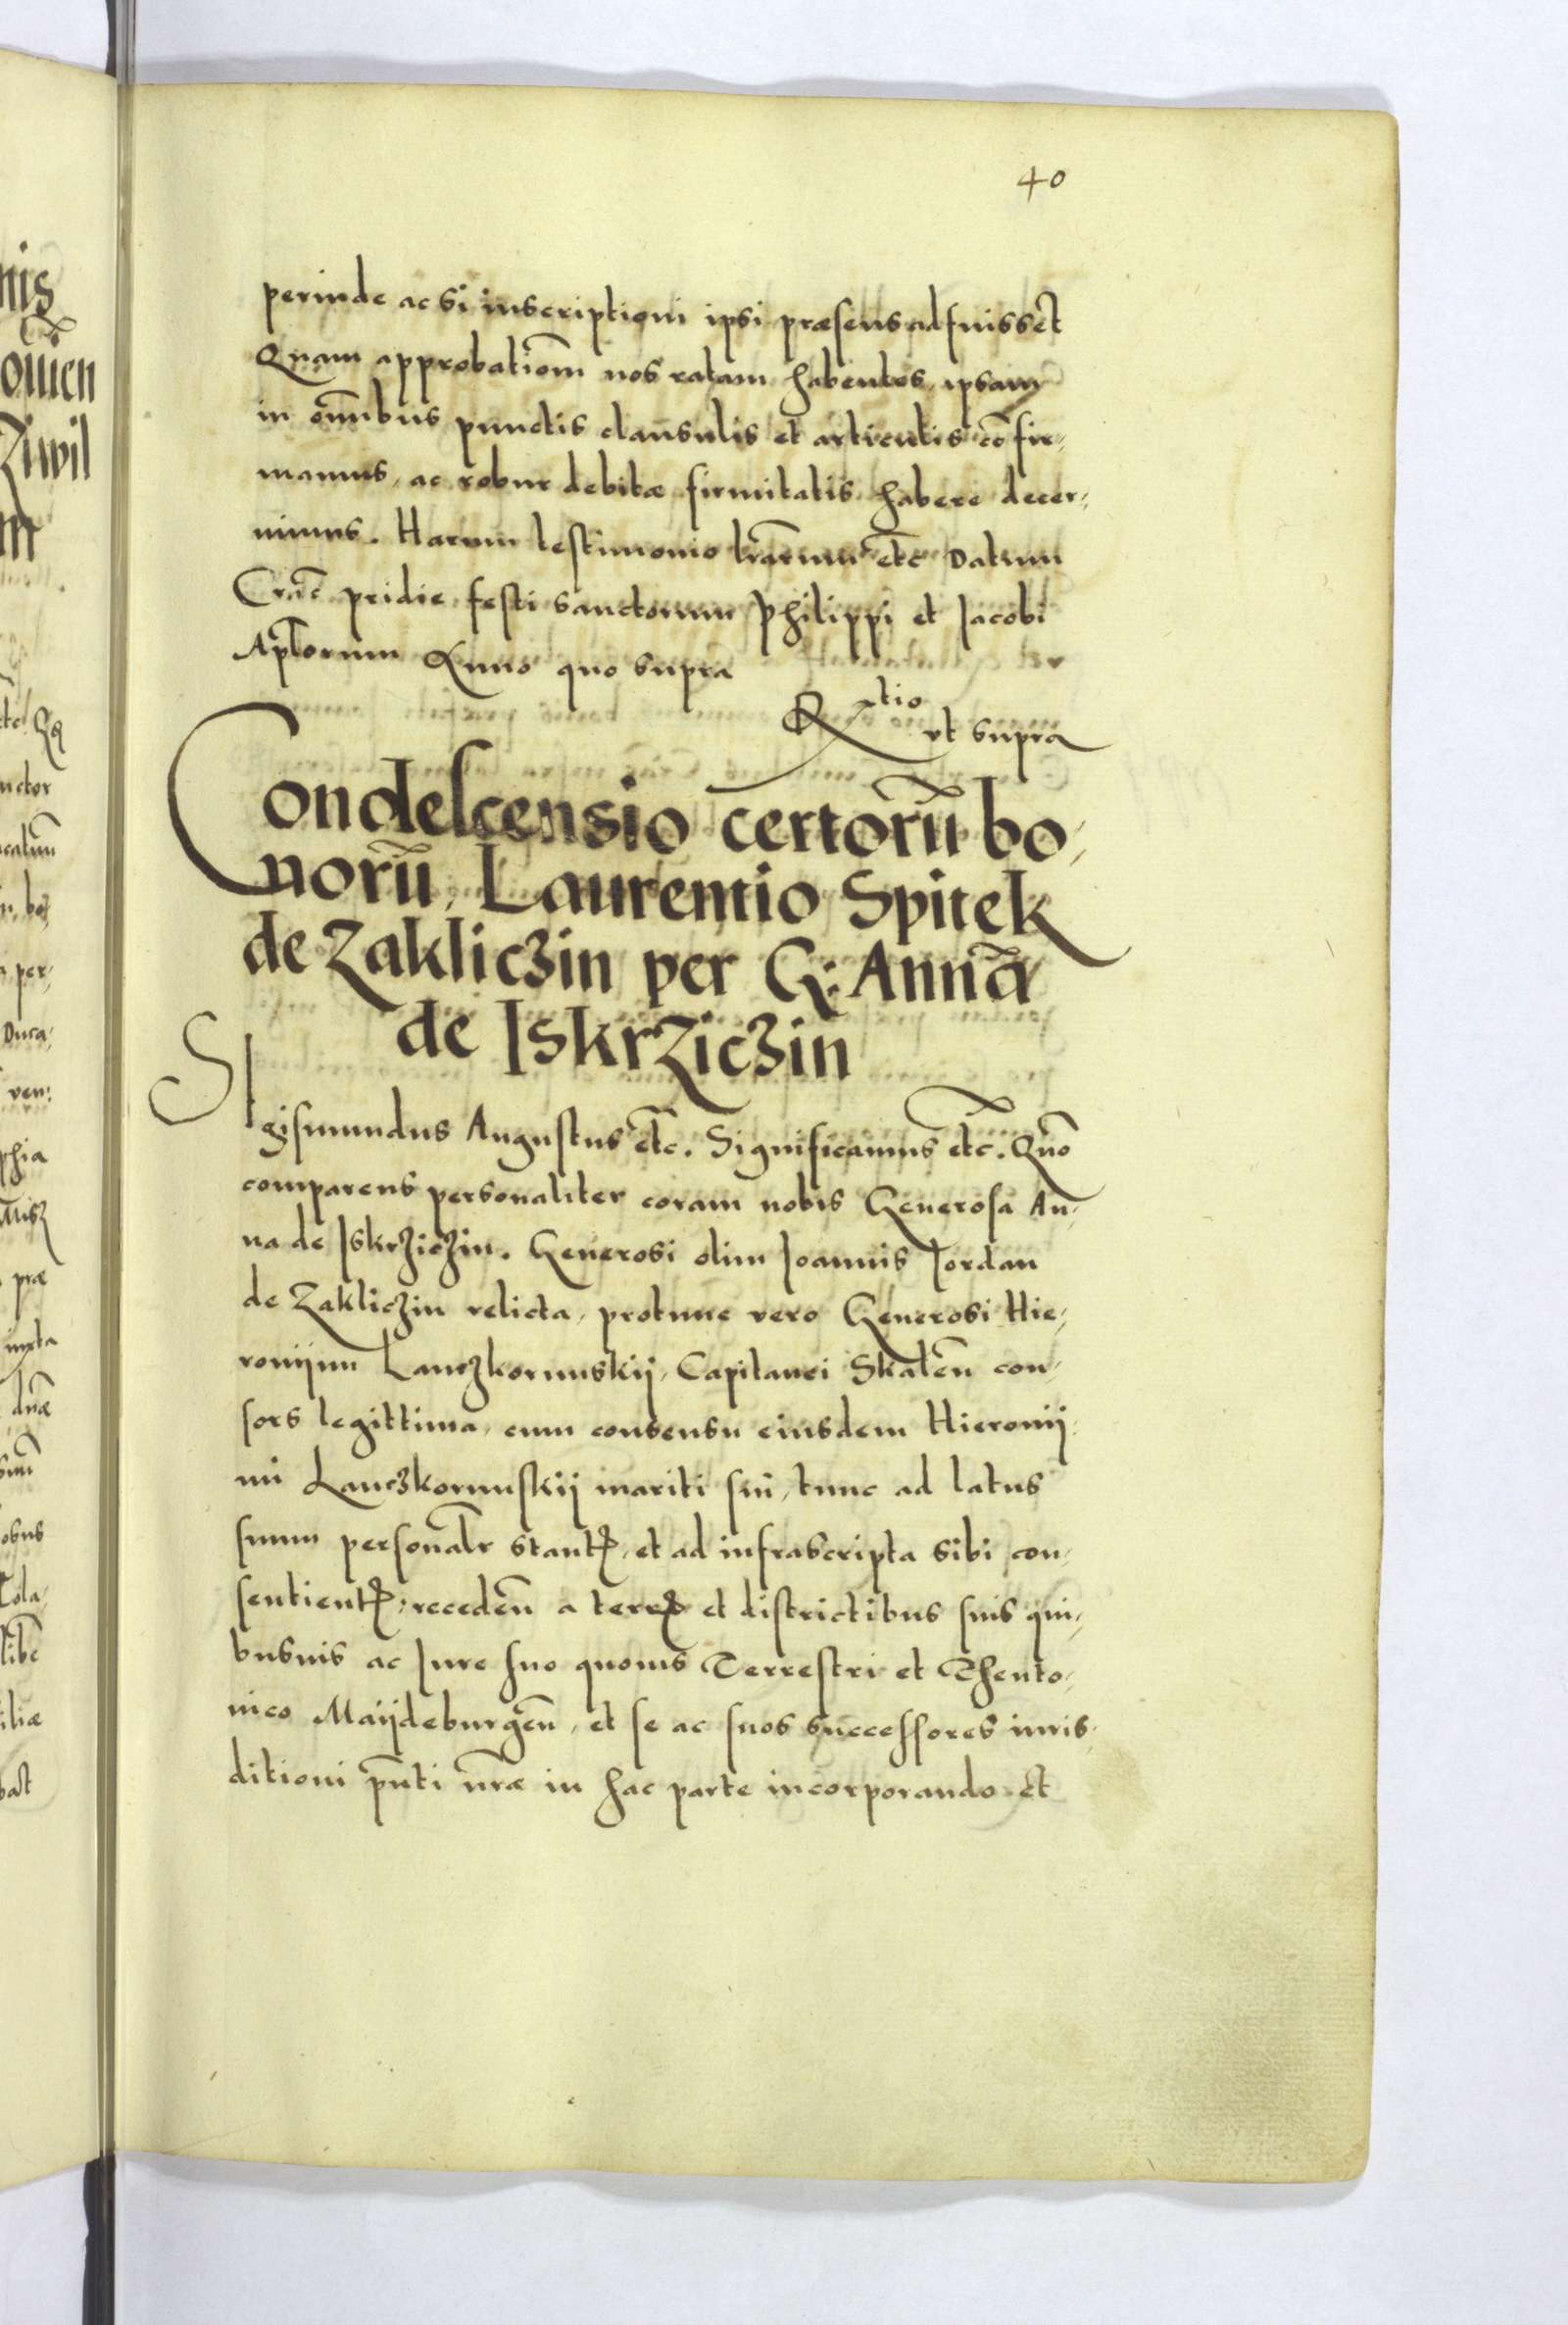 40
perinde ac si inscriptioni ipsi præsens adfuisset
Quam approbatiom̃ nos ratam habentes, ipsam
in om̃ibus punctis clausulis et articulis cõfir-
mamus, ac robur debitæ firmitatis habere decer-
nimus. Harum testimonio lr̃arum etc Datum
Crac̃ pridie festi sanctorum Philippi et Jacobi
Apl̃orum Anno quo supra
Rtio
vt supra
Condescensio certorũ bo-
norũ, Laurentio Spitek
de Zakliczin per G: Annã
de Iskrziczin
SIgismundus Augustus etc. Significamus etc. Quõ
comparens personaliter coram nobis Generosa An-
na de Iskrziczin. Generosi olim Joannis Jordan
de Zakliczin relicta, protunc vero Generosi Hie-
ronijmi Lanczkorunskij, Capitanei Skaleñ con-
sors legittima, cum consensu eiusdem Hieronij-
mi Lanczkorunskij mariti sui, tunc ad latus
suum personal̃r stantꝭ, et ad infrascripta sibi con-
sentientꝭ, recedeñ a terrꝭ et districtibus suis qui-
busuis ac Jure suo quouis Terrestri et Theuto-
nico Maijdeburgeñ, et se ac suos successores iuris-
ditioni pñti nr̃æ in hac parte incorporando et
nis
omen
Ziwil
m
etc. Qĩ
per-
Duca-
ven:
phia
præ
iuxta
obus
iliæ